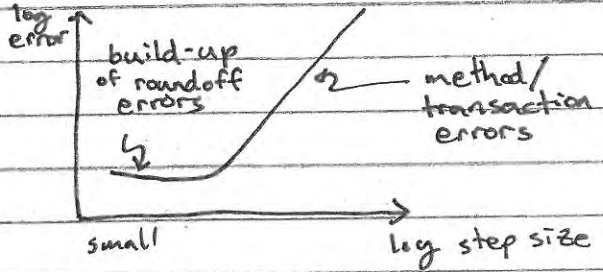 log
error
build-up
of roundoff
errors
method/
transaction
errors
small
log step size